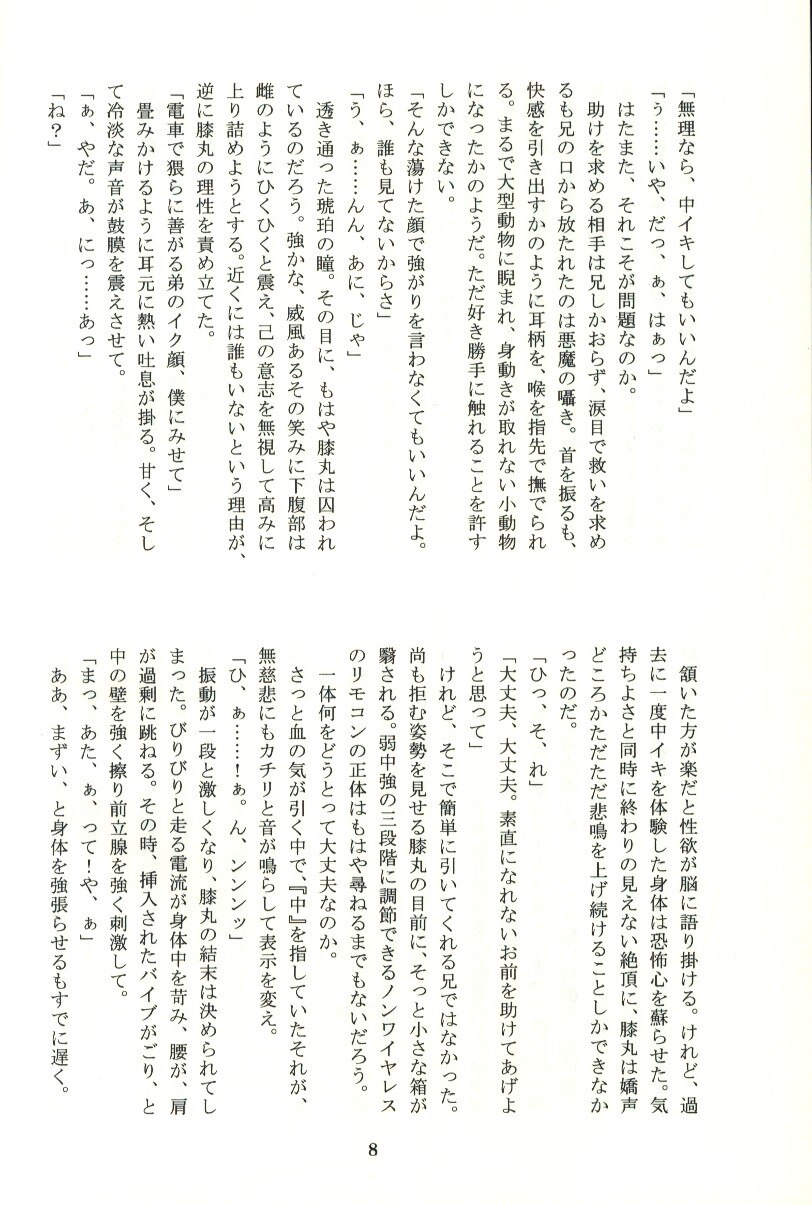 「無理なら、中イキしてもいいんだよ」
「ぅ……いや、だっ、ぁ、はぁっ」
はたまた、それこそが問題なのか。
助けを求める相手は兄しかおらず、涙目で救いを求め
るも兄の口から放たれたのは悪魔の囁き。首を振るも、
快感を引き出すかのように耳柄を、喉を指先で撫でられ
る。まるで大型動物に睨まれ、身動きが取れない小動物
になったかのようだ。ただ好き勝手に触れることを許す
しかできない。
「そんな蕩けた顔で強がりを言わなくてもいいんだよ。
ほら、誰も見てないからさ」
「う、ぁ……んん、あに、じゃ」
透き通った琥珀の瞳。その目に、もはや膝丸は囚われ
ているのだろう。強かな、威風あるその笑みに下腹部は
雌のようにひくひくと震え、己の意志を無視して高みに
上り詰めようとする。近くには誰もいないという理由が、
逆に膝丸の理性を責め立てた。
「電車で猥らに善がる弟のイク顔、僕にみせて」
畳みかけるように耳元に熱い吐息が掛る。甘く、そし
て冷淡な声音が鼓膜を震えさせて。
「ぁ、やだ。あ、にっ……あっ」
「ね？」
頷いた方が楽だと性欲が脳に語り掛ける。けれど、過
去に一度中イキを体験した身体は恐怖心を蘇らせた。気
持ちよさと同時に終わりの見えない絶頂に、膝丸は嬌声
どころかただただ悲鳴を上げ続けることしかできなか
ったのだ。
「ひっ、そ、れ」
「大丈夫、大丈夫。素直になれないお前を助けてあげよ
うと思って」
けれど、そこで簡単に引いてくれる兄ではなかった。
尚も拒む姿勢を見せる膝丸の目前に、そっと小さな箱が
翳される。弱中強の三段階に調節できるノンワイヤレス
のリモコンの正体はもはや尋ねるまでもないだろう。
一体何をどうとって大丈夫なのか。
さっと血の気が引く中で、『中』を指していたそれが、
無慈悲にもカチリと音が鳴らして表示を変え。
「ひ、ぁ……！ぁ。ん、ンンンッ」
振動が一段と激しくなり、膝丸の結末は決められてし
まった。びりびりと走る電流が身体中を苛み、腰が、肩
が過剰に跳ねる。その時、挿入されたバイブがごり、と
中の壁を強く擦り前立腺を強く刺激して。
「まっ、あた、ぁ、って！や、ぁ」
ああ、まずい、と身体を強張らせるもすでに遅く。
8